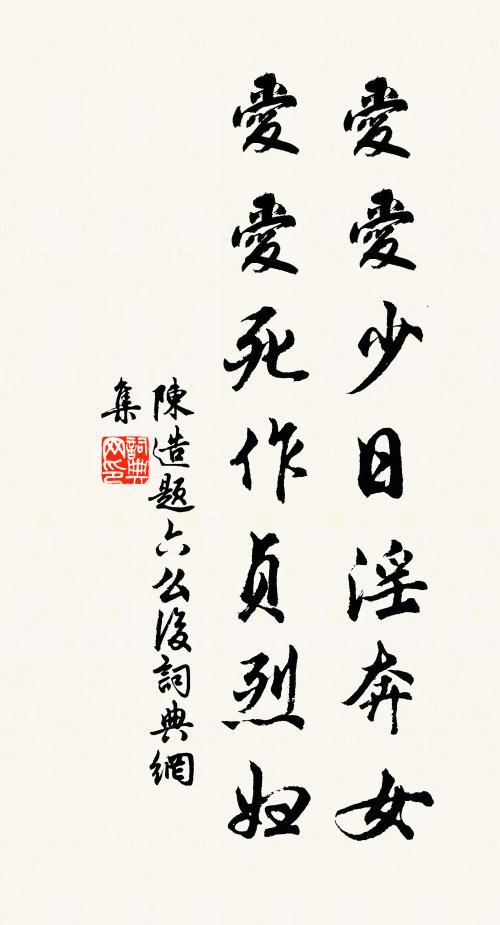 愛愛少日淫奔女
愛愛死作贞烈妇
陳造題六么後詞典網
集
詞典網印